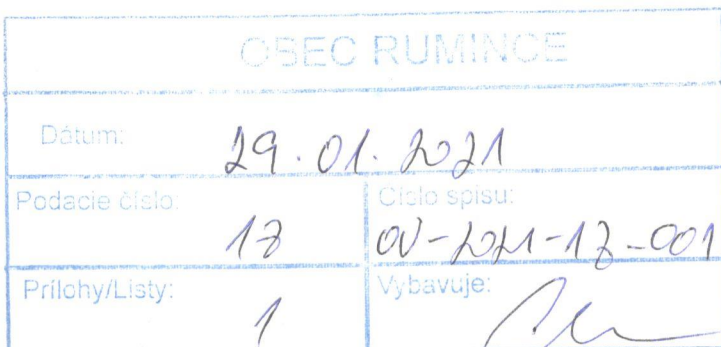 OBEC RUMINCE
Dátum:
29.01.2021
Podacie číslo:
Číslo spisu:
17
OÚ-2021-17-001
Prílohy/Listy:
Vybavuje:
1